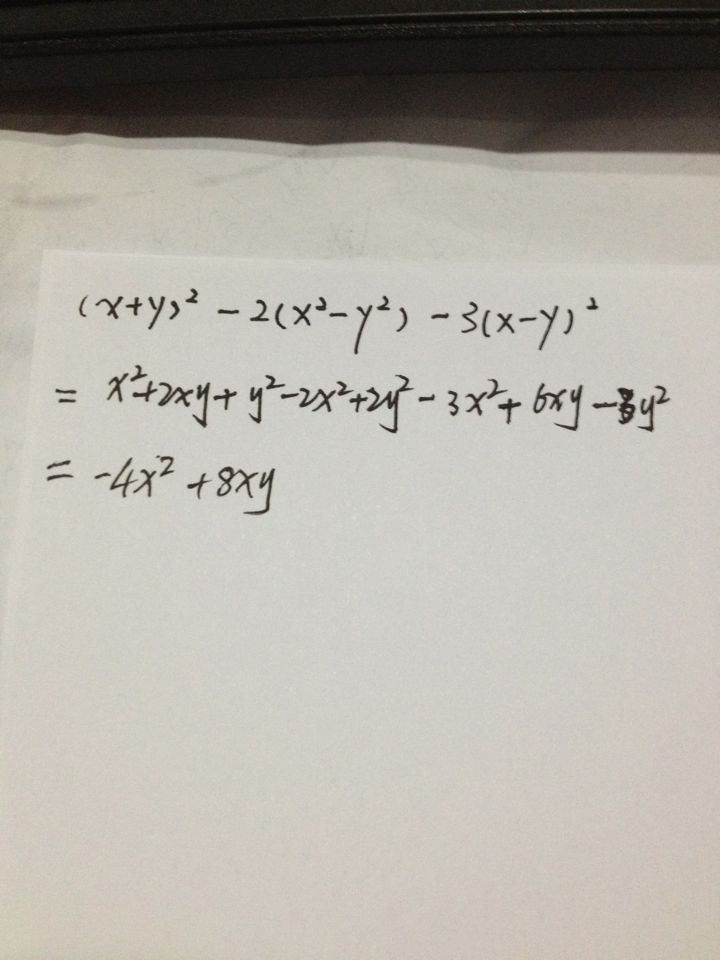 (x+y)² - 2(x²-y²) - 3(x-y)²
= x²+2xy+y²-2x²+2y²-3x²+6xy-3y²
= -4x²+8xy